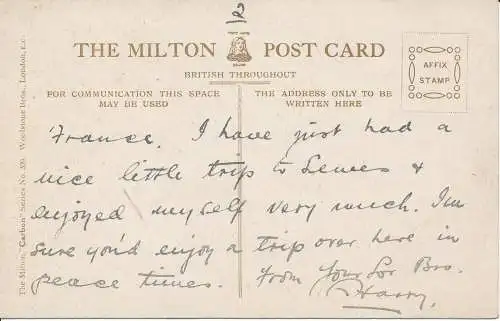 12
THE MILTON POST CARD
BRITISH THROUGHOUT
FOR COMMUNICATION THIS SPACE
MAY BE USED
THE ADDRESS ONLY TO BE
WRITTEN HERE
AFFIX
STAMP
The Milton, "Carbon" Series No. Woolstone Bros., London, E.C.
France. I have just had a
nice little trip to &
enjoyed myself very much. I'm
sure you'd enjoy a trip over here in
peace times. From Your Lov Bro.
Harry.